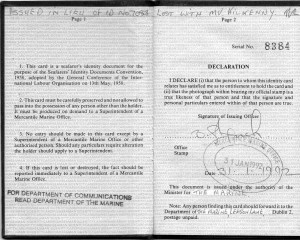 ISSUED IN LIEU OF ID LOST WITH MV KILKENNY
Page 1
1. This card is a seafarer's identity document for the
purpose of the Seafarers' Identity Documents Convention,
1958, adopted by the General Conference of the Inter-
national Labour Organisation on 13th May, 1958.
2. This card must be carefully preserved and not allowed to
pass into the possession of any person other than the holder.
It must be produced on demand to a Superintendent of a
Mercantile Marine Office.
3. No entry should be made in this card except by a
Superintendent of a Mercantile Marine Office or other
authorised person. Should any particulars require alteration
the holder should apply to a Superintendent.
4. If this card is lost or destroyed, the fact should be
reported immediately to a Superintendent of a Mercantile
Marine Office.
FOR DEPARTMENT OF COMMUNICATIONS
READ DEPARTMENT OF THE MARINE
Page 2
Serial No. 8384
DECLARATION
I DECLARE (i) that the person to whom this identity card
relates has satisfied me as to entitlement to hold the card and
(ii) that the photograph within bearing my official stamp is a
true likeness of that person and that the signature and
personal particulars entered within of that person are true.
Signature of Issuing Officer
Office
Stamp
31 JAN 1992
Date 31.1.1992
This document is issued under the authority of the
Minister for THE MARINE
Note: Any person finding this card should forward it to the
Department of THE MARINE, LEESON LANE, Dublin 2,
postage unpaid.